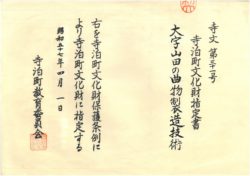 寺文第三二号
寺泊町文化財指定書
大字山田の曲物製造技術
右を寺泊町文化財保護条例に
より寺泊町文化財に指定する
昭和五十七年四月一日
寺泊町教育委員会